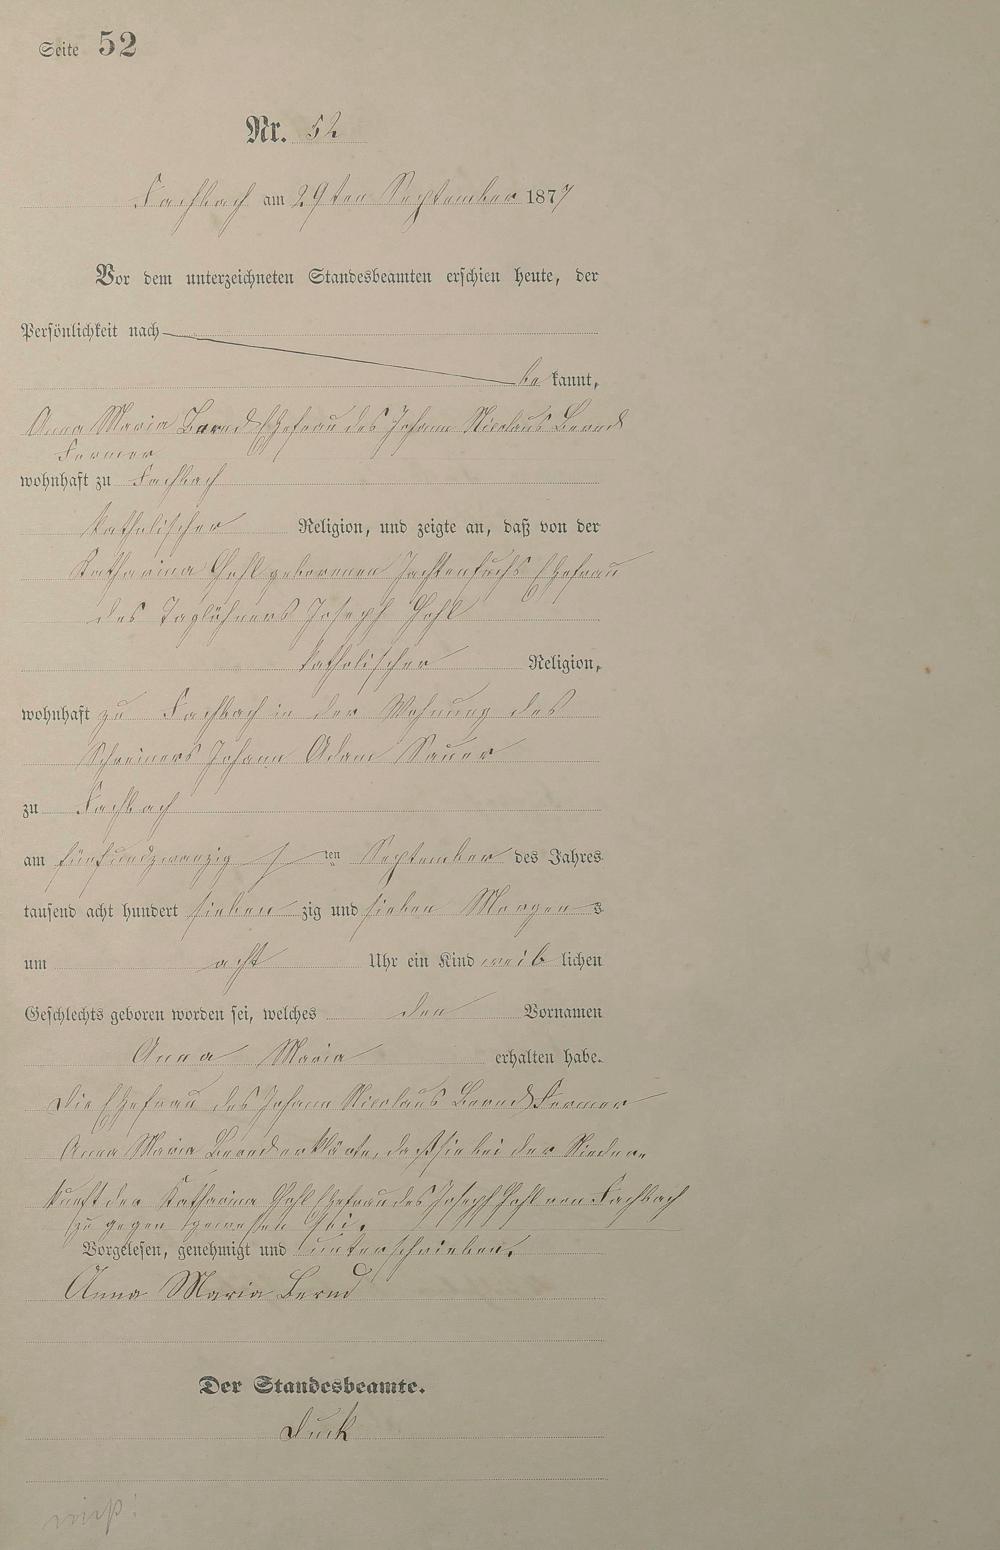 Seite 52
Nr. 52
Fachbach am 29ten September 1877
Vor dem unterzeichneten Standesbeamten erschien heute, der
Persönlichkeit nach
be kannt,
Anna Maria Bernd Ehefrau des Johann Nicolaus Bernd
Former
wohnhaft zu Fachbach
katholischer Religion, und zeigte an, daß von der
Katharina Gohl geborenen Ehefrau
des Taglöhners Joseph Gohl
katholischer Religion,
wohnhaft zu Fachbach in der Wohnung des
Schreiners Johann Adam Sauer
zu Fachbach
am fünfundzwanzig ten September des Jahres
tausend acht hundert sieben zig und sieben Morgens
um acht Uhr ein Kind weib lichen
Geschlechts geboren worden sei, welches den Vornamen
Anna Maria erhalten habe.
Die Ehefrau des Johann Nicolaus Bernd Former
Anna Maria Bernd erklärte, daß sie bei der Nieder-
kunft der Katharina Gohl Ehefrau des Joseph Gohl von Fachbach
zu gegen gewesen sei.
Vorgelesen, genehmigt und unterschrieben.
Anna Maria Bernd
Der Standesbeamte.